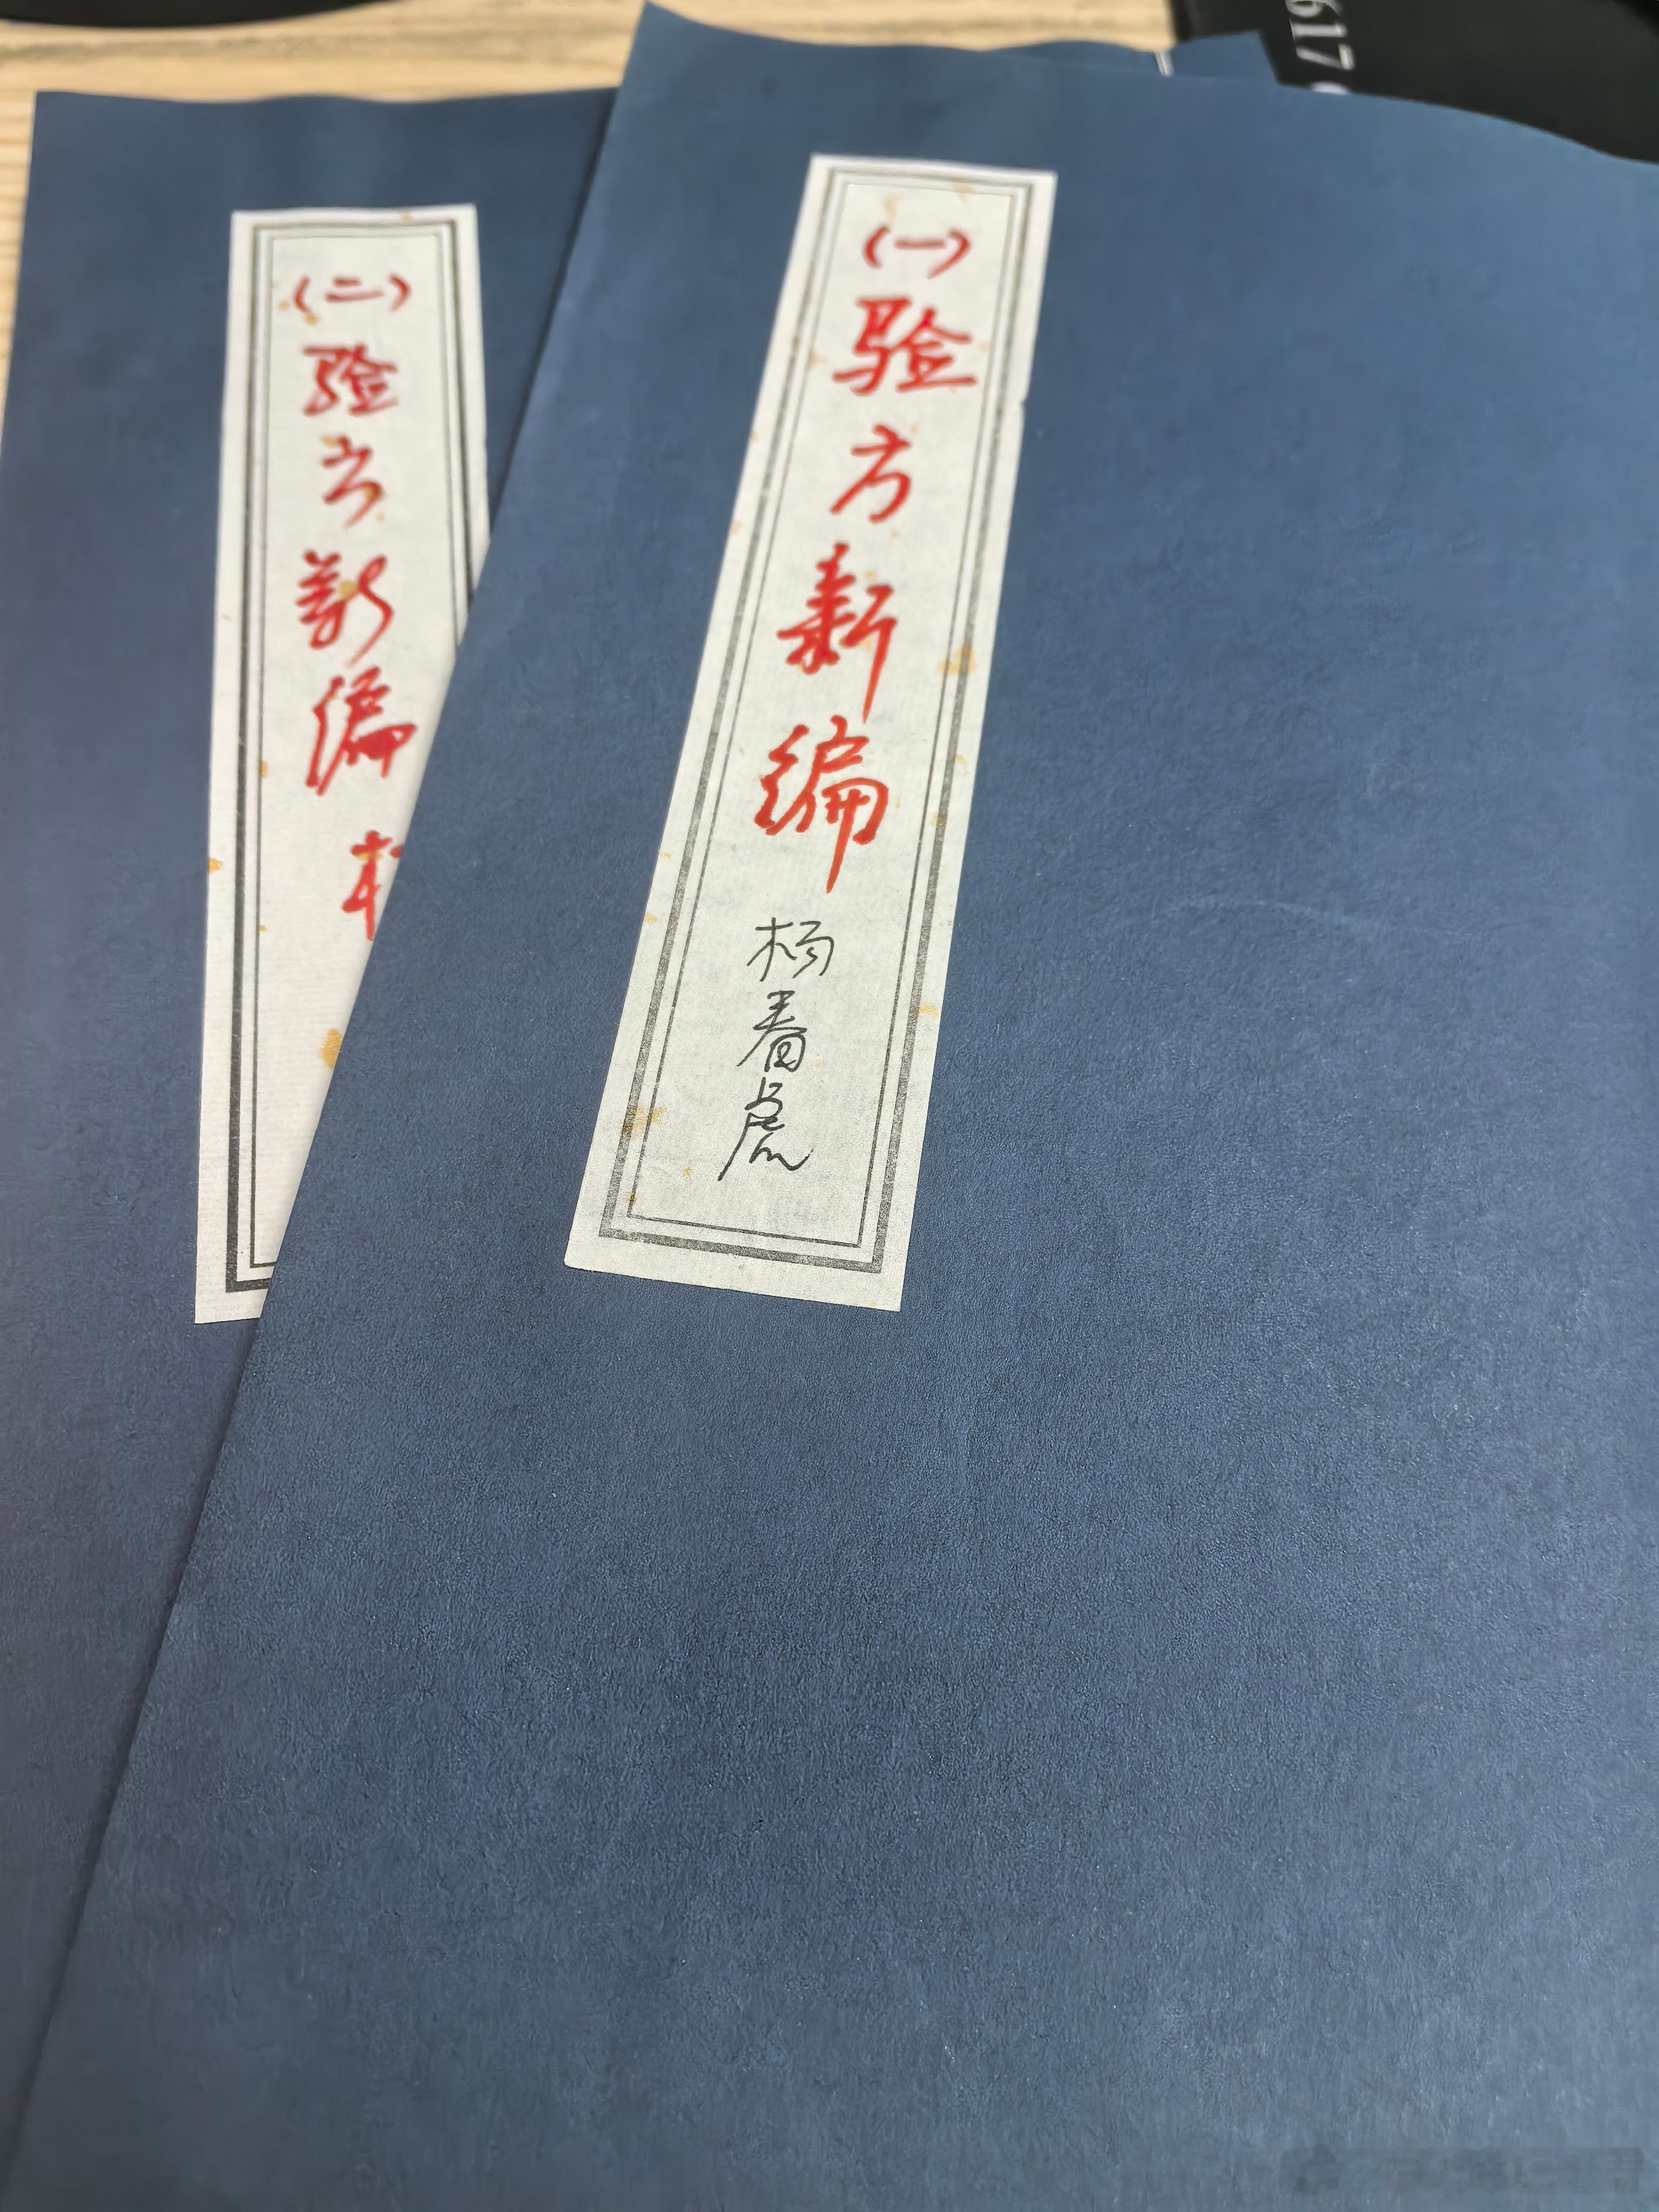 （一）验方新编
杨春虎
（二）验方新编
617